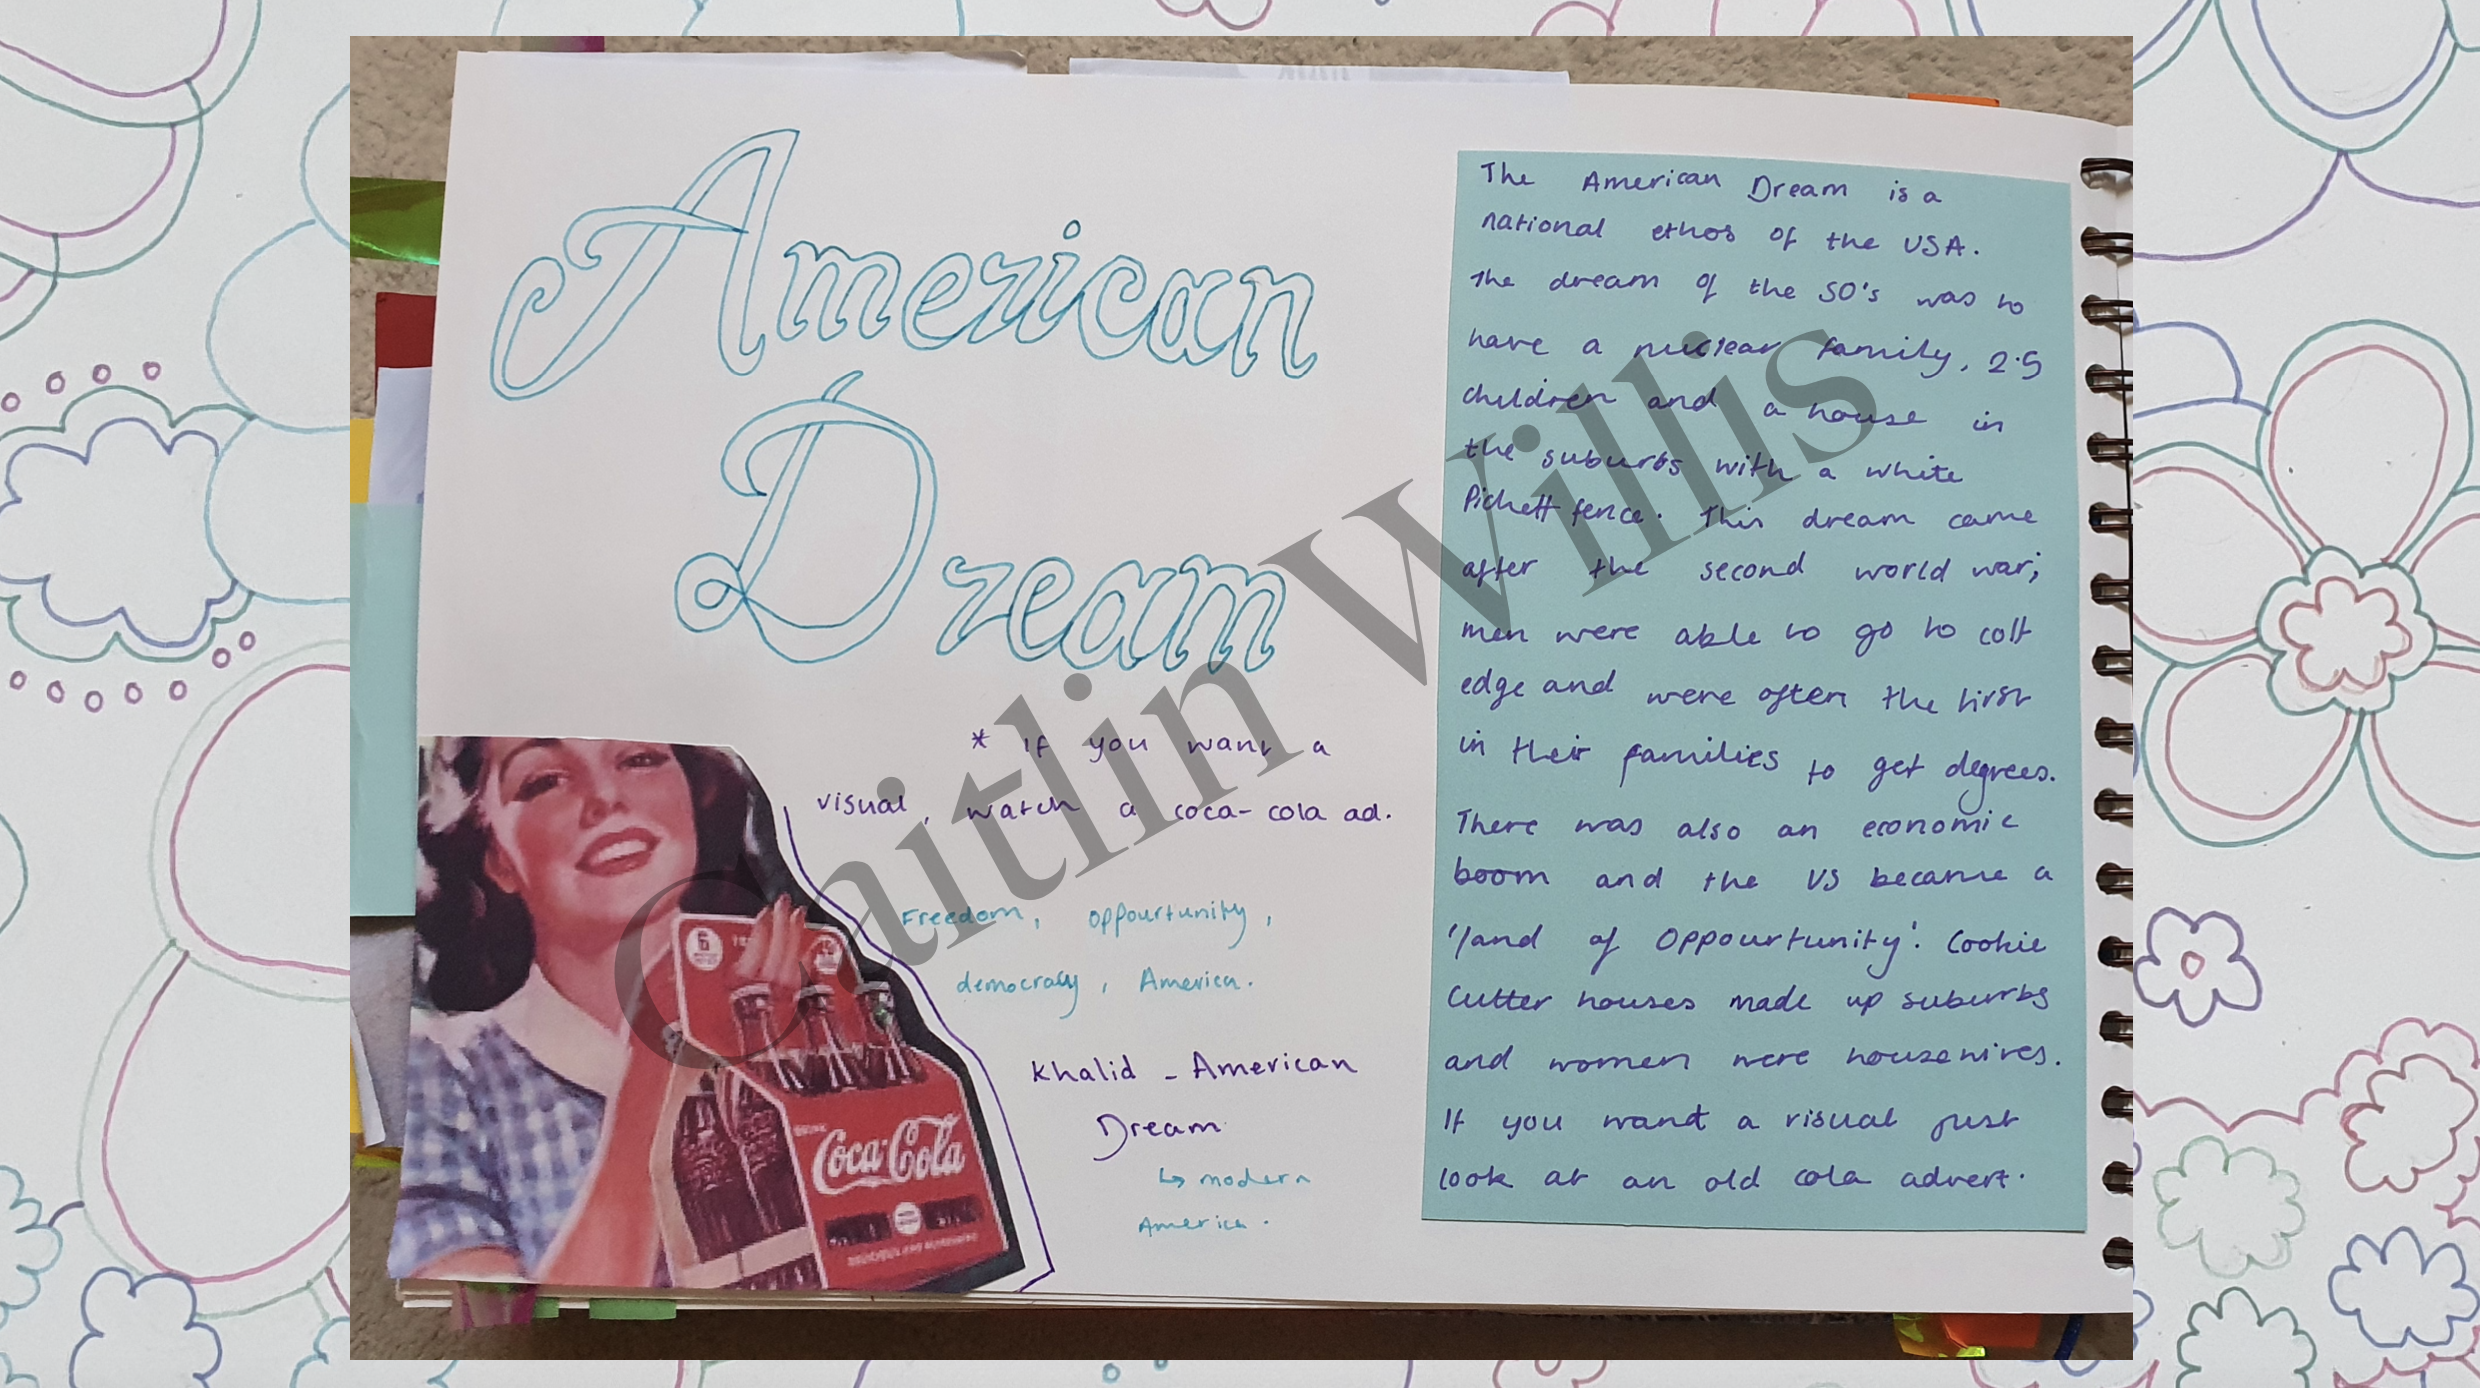 American
Dream
* If you want a
visual, watch a coca-cola ad.
Freedom, oppourtunity,
democracy, America.
Khalid - American
Dream
↳ modern
America.
6
DRINK
Coca-Cola
DELICIOUS AND REFRESHING
The American Dream is a
national ethos of the USA.
The dream of the 50's was to
have a nuclear family, 2.5
children and a house in
the suburbs with a white
Pickett fence. This dream came
after the second world war;
men were able to go to coll
edge and were often the first
in their families to get degrees.
There was also an economic
boom and the US became a
'land of Oppourtunity'. Cookie
Cutter houses made up suburbs
and women were housewives.
If you want a visual just
look at an old cola advert.
Caitlin Willis